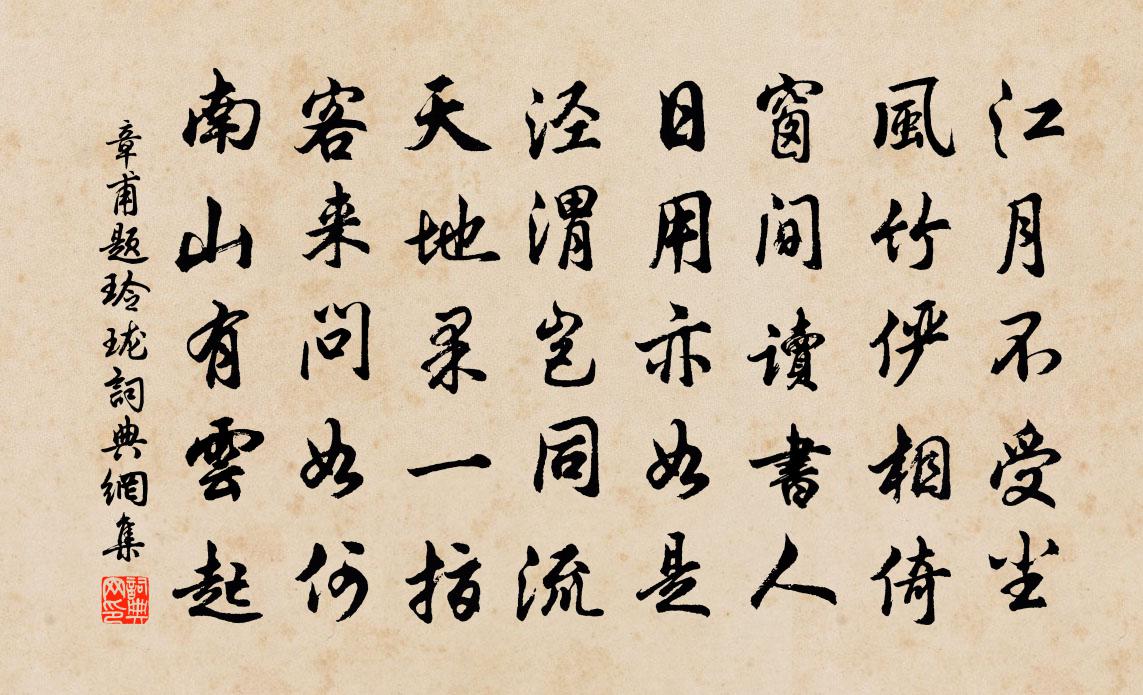 江月不受尘
風竹俨相倚
窗間讀書人
日用亦如是
泾渭岂同流
天地果一指
客来問如何
南山有雲起
章甫題玲珑詞典網集
詞典网印